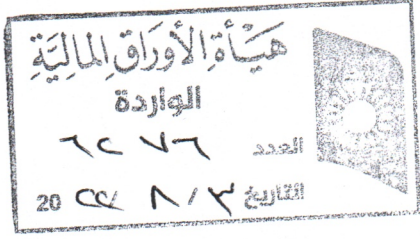 هَيْأَةِ الأَوْرَاقِ المَالِيَّةِ
الواردة
العدد ٦٢٧٦
التاريخ ٣ / ٨ / ٢٢ 20